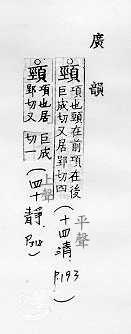 廣韻
頸 項也頸在前項在後
巨成切又居郢切四
平聲
(十四清 P.193
頸 項也居郢切又
巨成切一
上聲
(四十靜 P.318